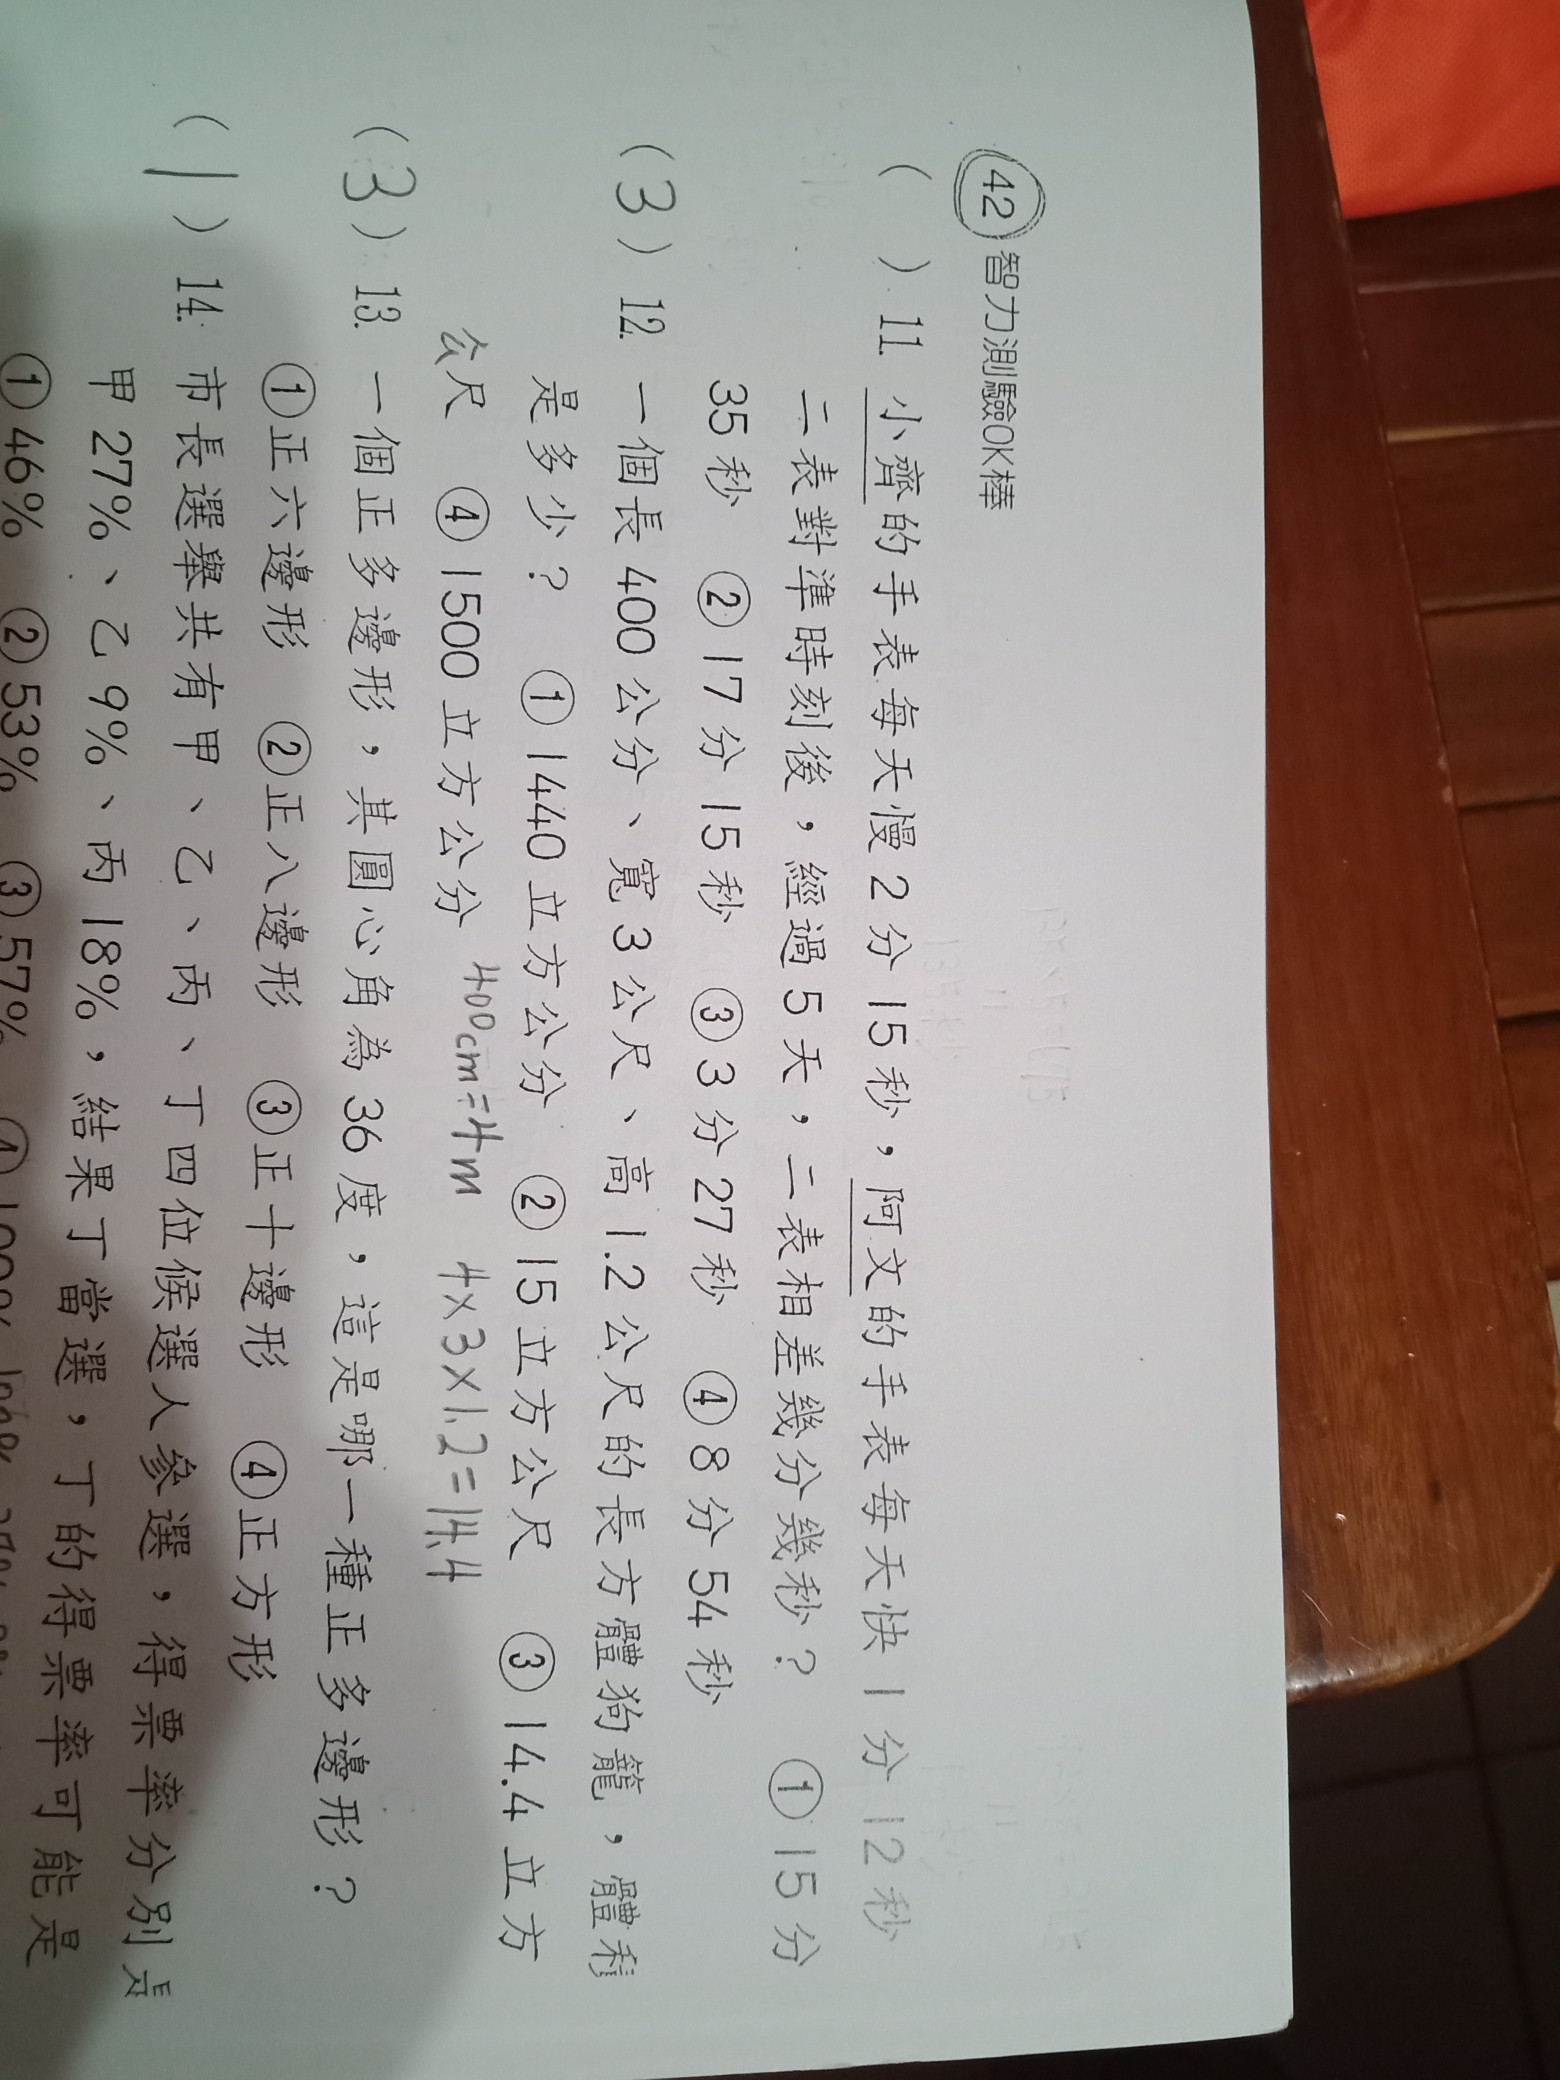 42 智力測驗OK棒
(  ) 11. 小齊的手表每天慢2分15秒，阿文的手表每天快1分12秒
二表對準時刻後，經過5天，二表相差幾分幾秒？ ①15分
35秒 ②17分15秒 ③3分27秒 ④8分54秒
(3) 12. 一個長400公分、寬3公尺、高1.2公尺的長方體狗籠，體積
是多少？ ①1440立方公分 ②15立方公尺 ③14.4立方
公尺 ④1500立方公分 400cm=4m 4×3×1.2=14.4
(3) 13. 一個正多邊形，其圓心角為36度，這是哪一種正多邊形？
①正六邊形 ②正八邊形 ③正十邊形 ④正方形
(1) 14. 市長選舉共有甲、乙、丙、丁四位候選人參選，得票率分別是
甲27%、乙9%、丙18%，結果丁當選，丁的得票率可能是
①46% ②53% ③57% ④100%